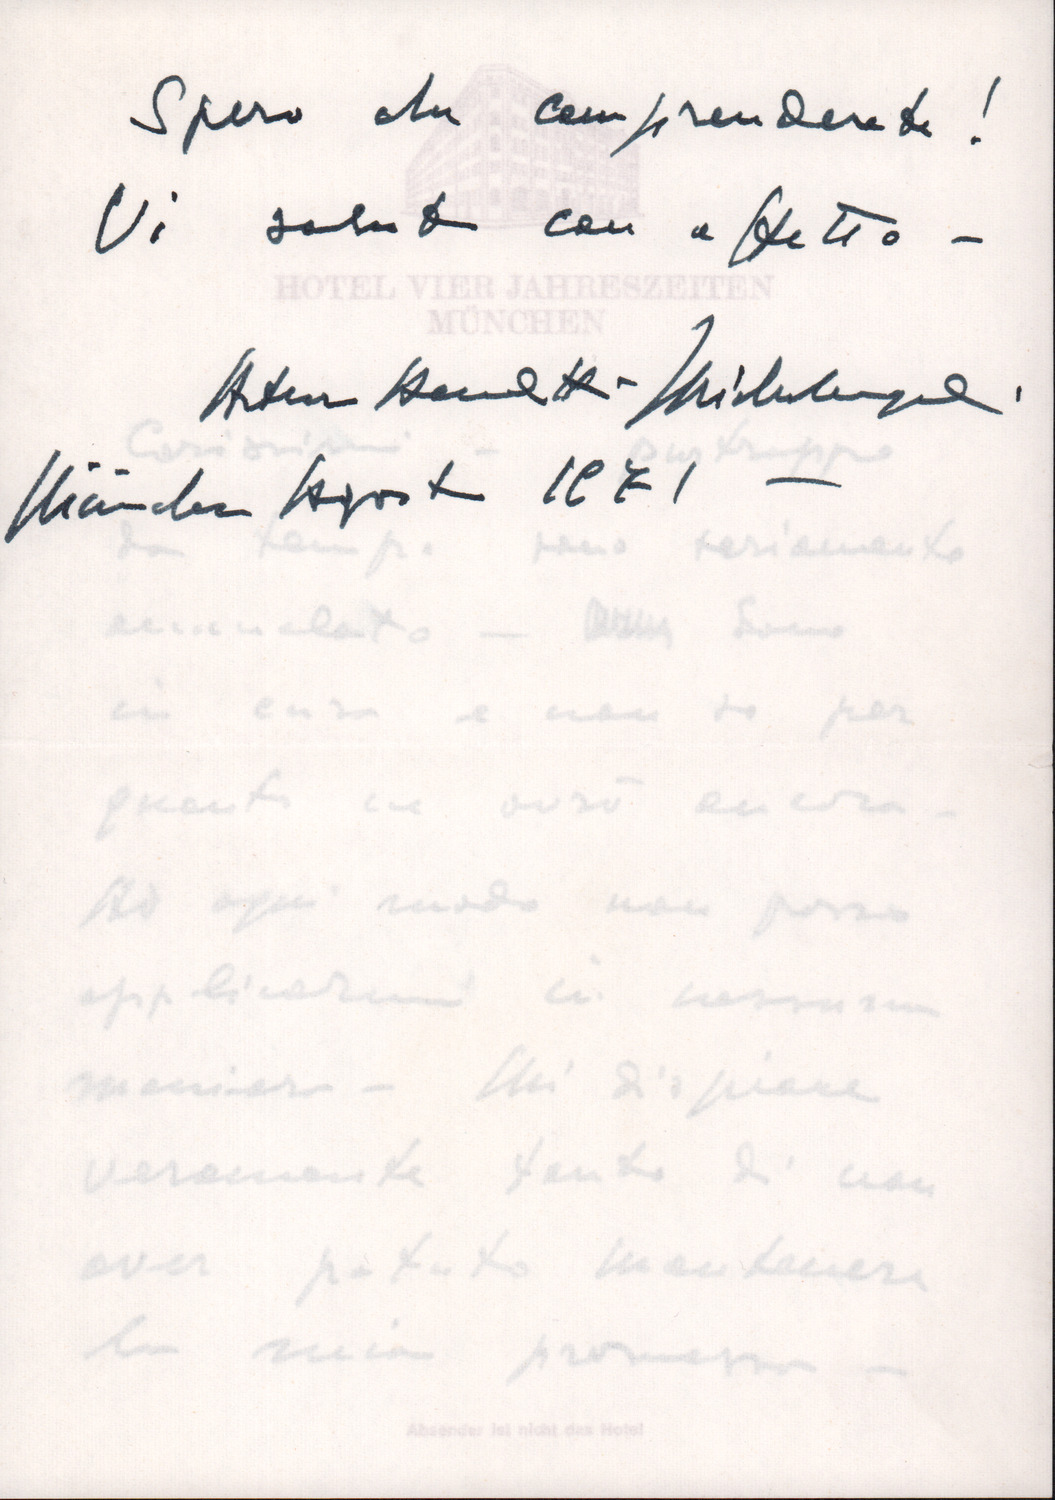 Spero che comprenderete!
Vi saluto con affetto -
HOTEL VIER JAHRESZEITEN
MÜNCHEN
Arturo Benedetti-Michelangeli.
Carissimi - purtroppo
München Agosto 1971 —
da tempo sono seriamente
ammalato — Sono
in cura e non so per
quanto ne avrò ancora -
Ad ogni modo non posso
applicarmi in nessuna
maniera - Mi dispiace
veramente tanto di non
aver potuto mantenere
la mia promessa -
Absender ist nicht das Hotel